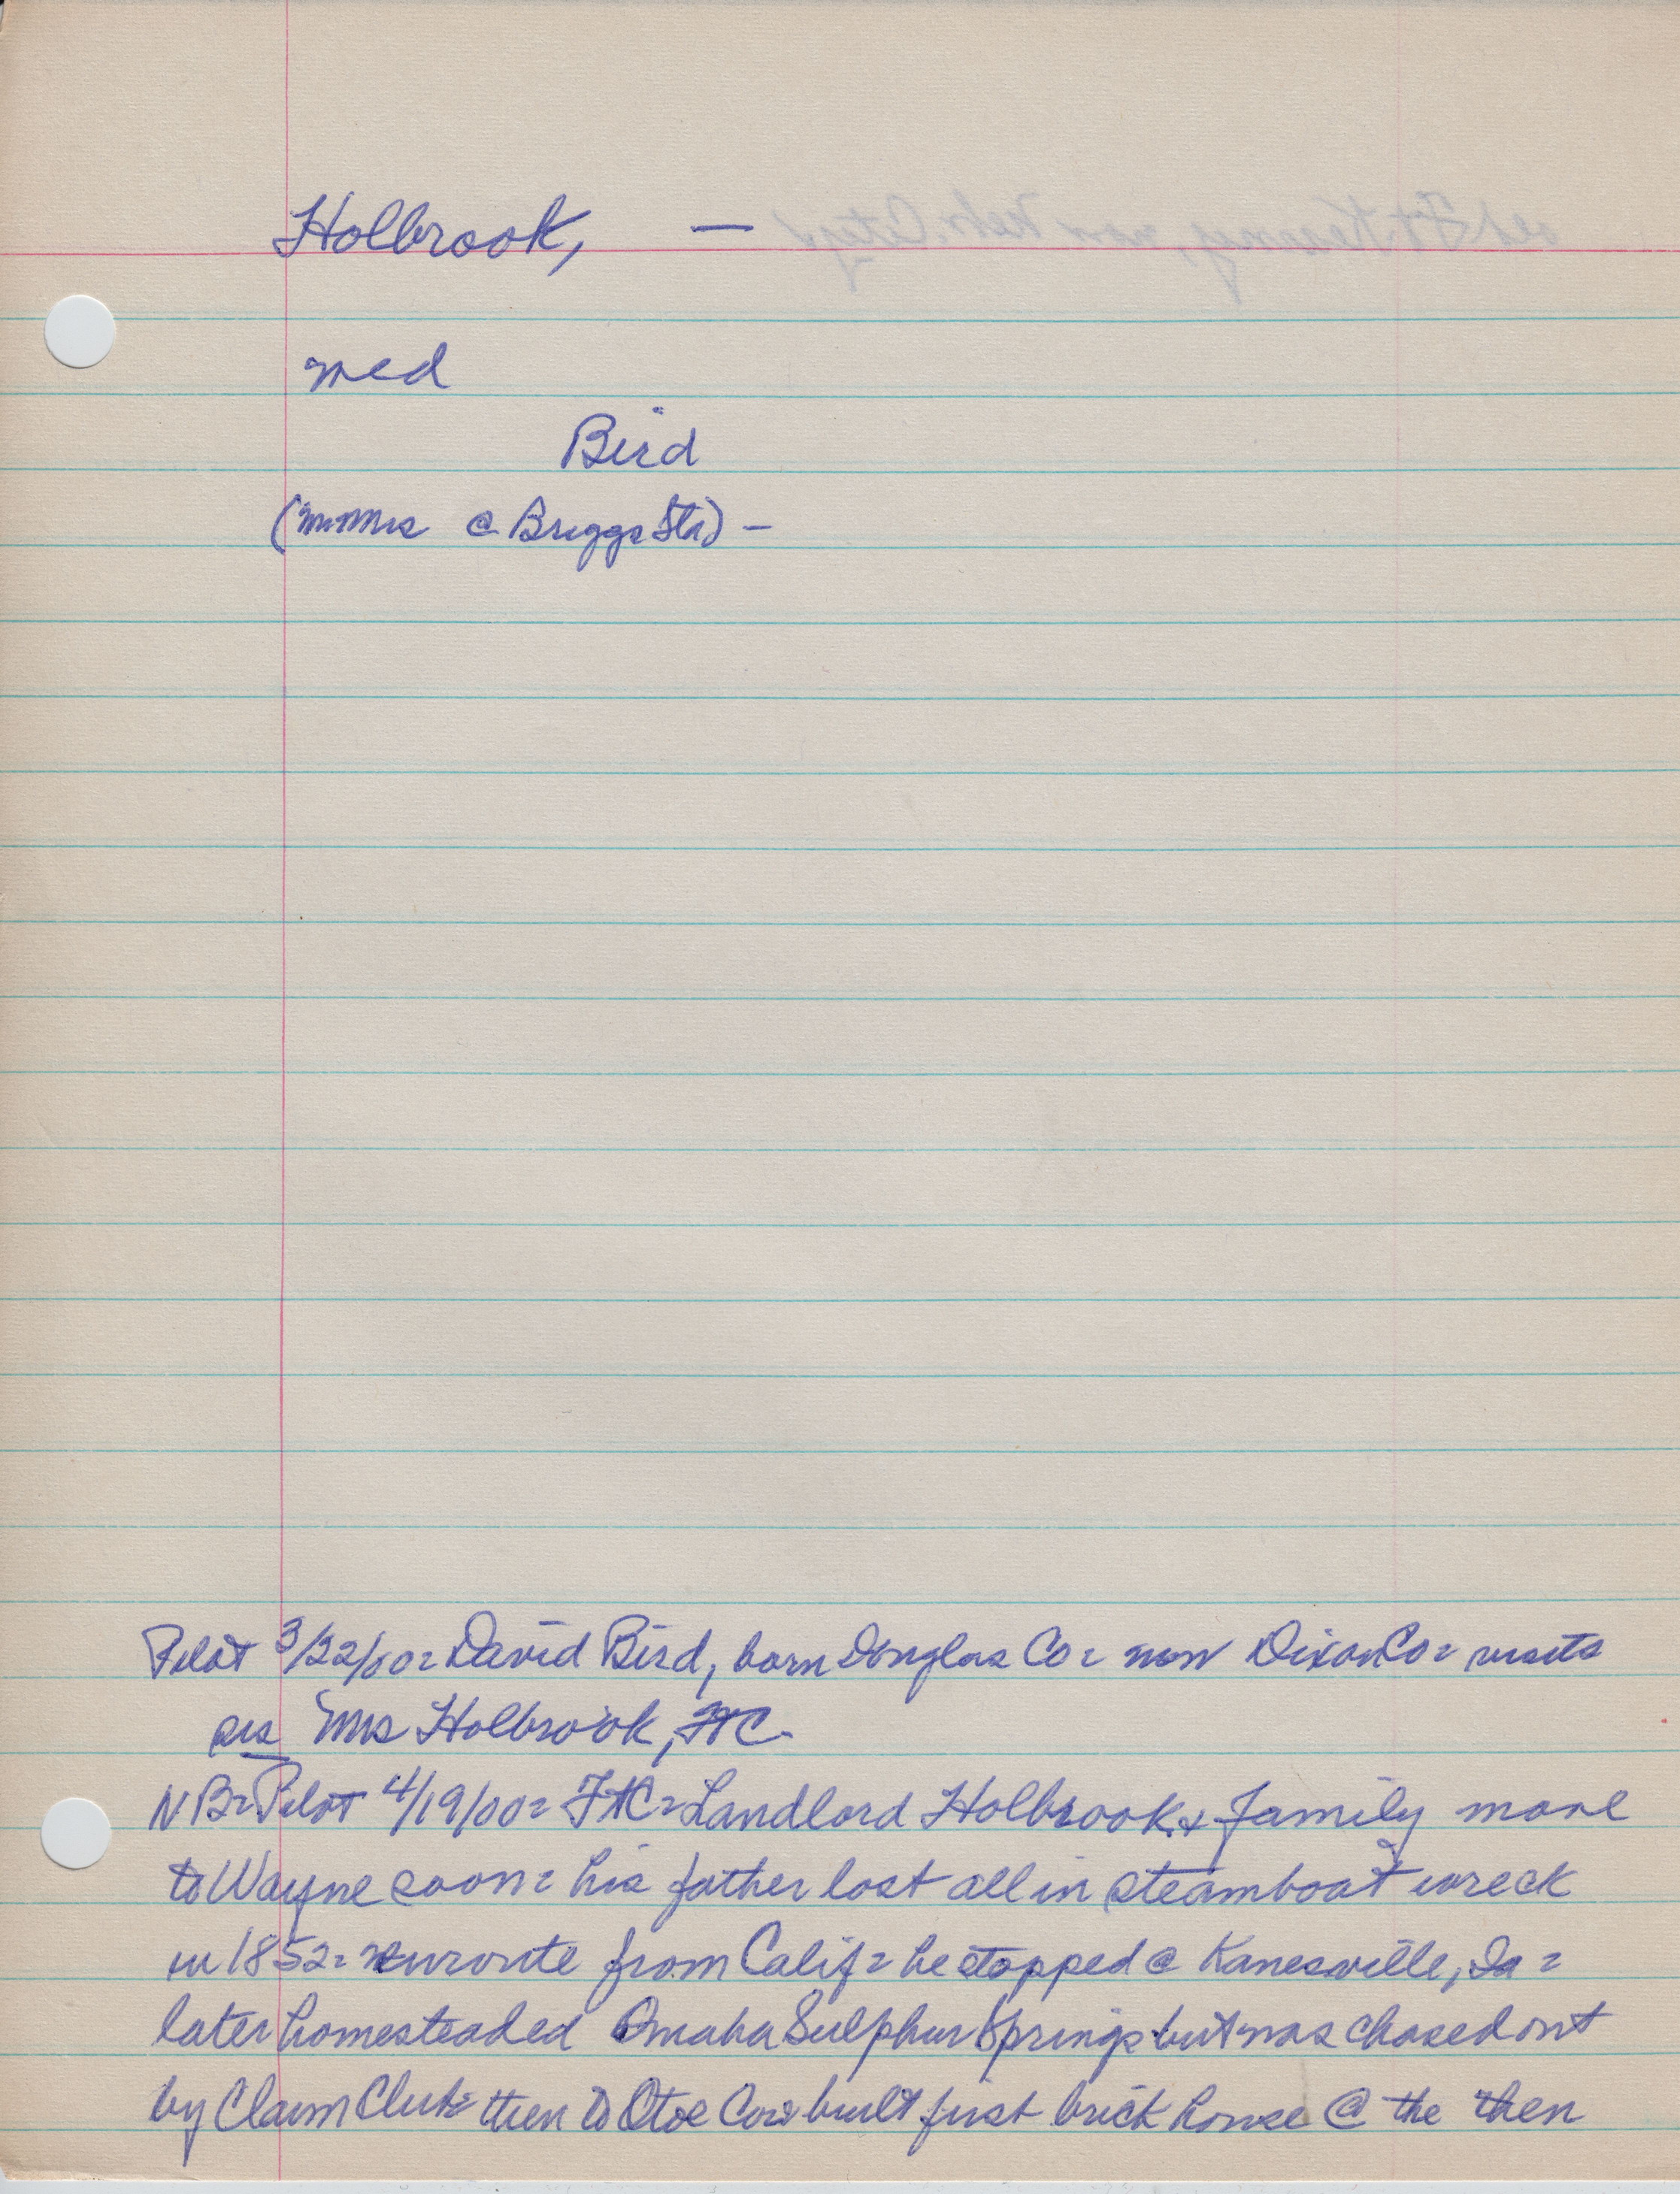 Holbrook, —
old Ft. Kearney, now Nebr. City)
med
Bird
(Mr Mrs @ Briggs Sta) —
Pilot 3/22/00= David Bird, born Douglas Co= now Dixon Co= visits
sis Mrs Holbrook, FtC.
NB= Pilot 4/19/00= FtC= Landlord Holbrook & family move
to Wayne soon= his father lost all in steamboat wreck
in 1852= enroute from Calif= he stopped @ Kanesville, Ia=
later homesteaded Omaha Sulphur Springs but was chased out
by Claim Club= then to Otoe Co= built first brick house @ the then